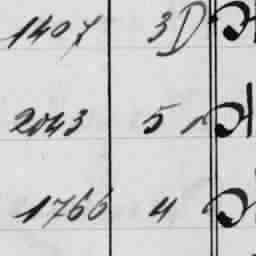 1407 3D
2043 5
1766 4